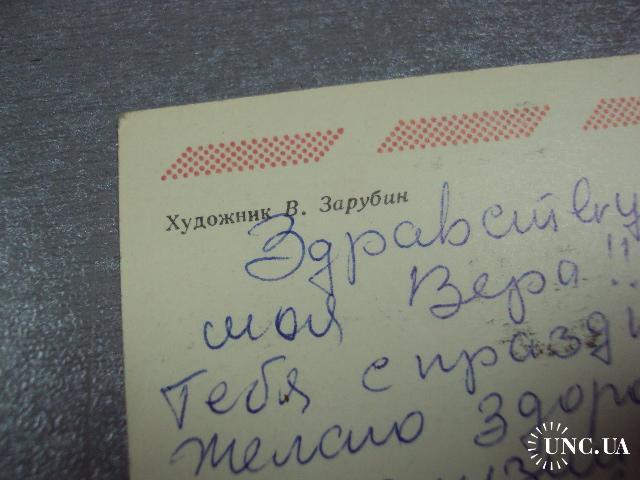 Художник В. Зарубин
Здравству
моя Вера!!
Тебя с празд
желаю здоро
UNC.UA